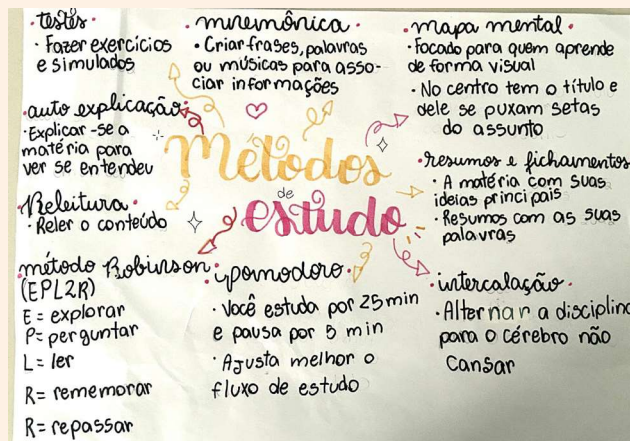 • testes
• Fazer exercícios
e simulados
• mnemônica •
• Criar frases, palavras
ou músicas para asso-
ciar informações
• mapa mental •
• Focado para quem aprende
de forma visual
• No centro tem o título e
dele se puxam setas
do assunto
• auto explicação •
• Explicar-se a
matéria para
ver se entendeu
Métodos
de
estudo
• resumos e fichamentos
• A matéria com suas
ideias principais
• Resumos com as suas
palavras
• Releitura •
• Reler o conteúdo
método Robinson •
(EPL2R)
E = explorar
P = perguntar
L = ler
R = rememorar
R = repassar
• pomodoro •
• Você estuda por 25 min
e pausa por 5 min
• Ajusta melhor o
fluxo de estudo
• intercalação •
• Alternar a disciplina
para o cérebro não
cansar